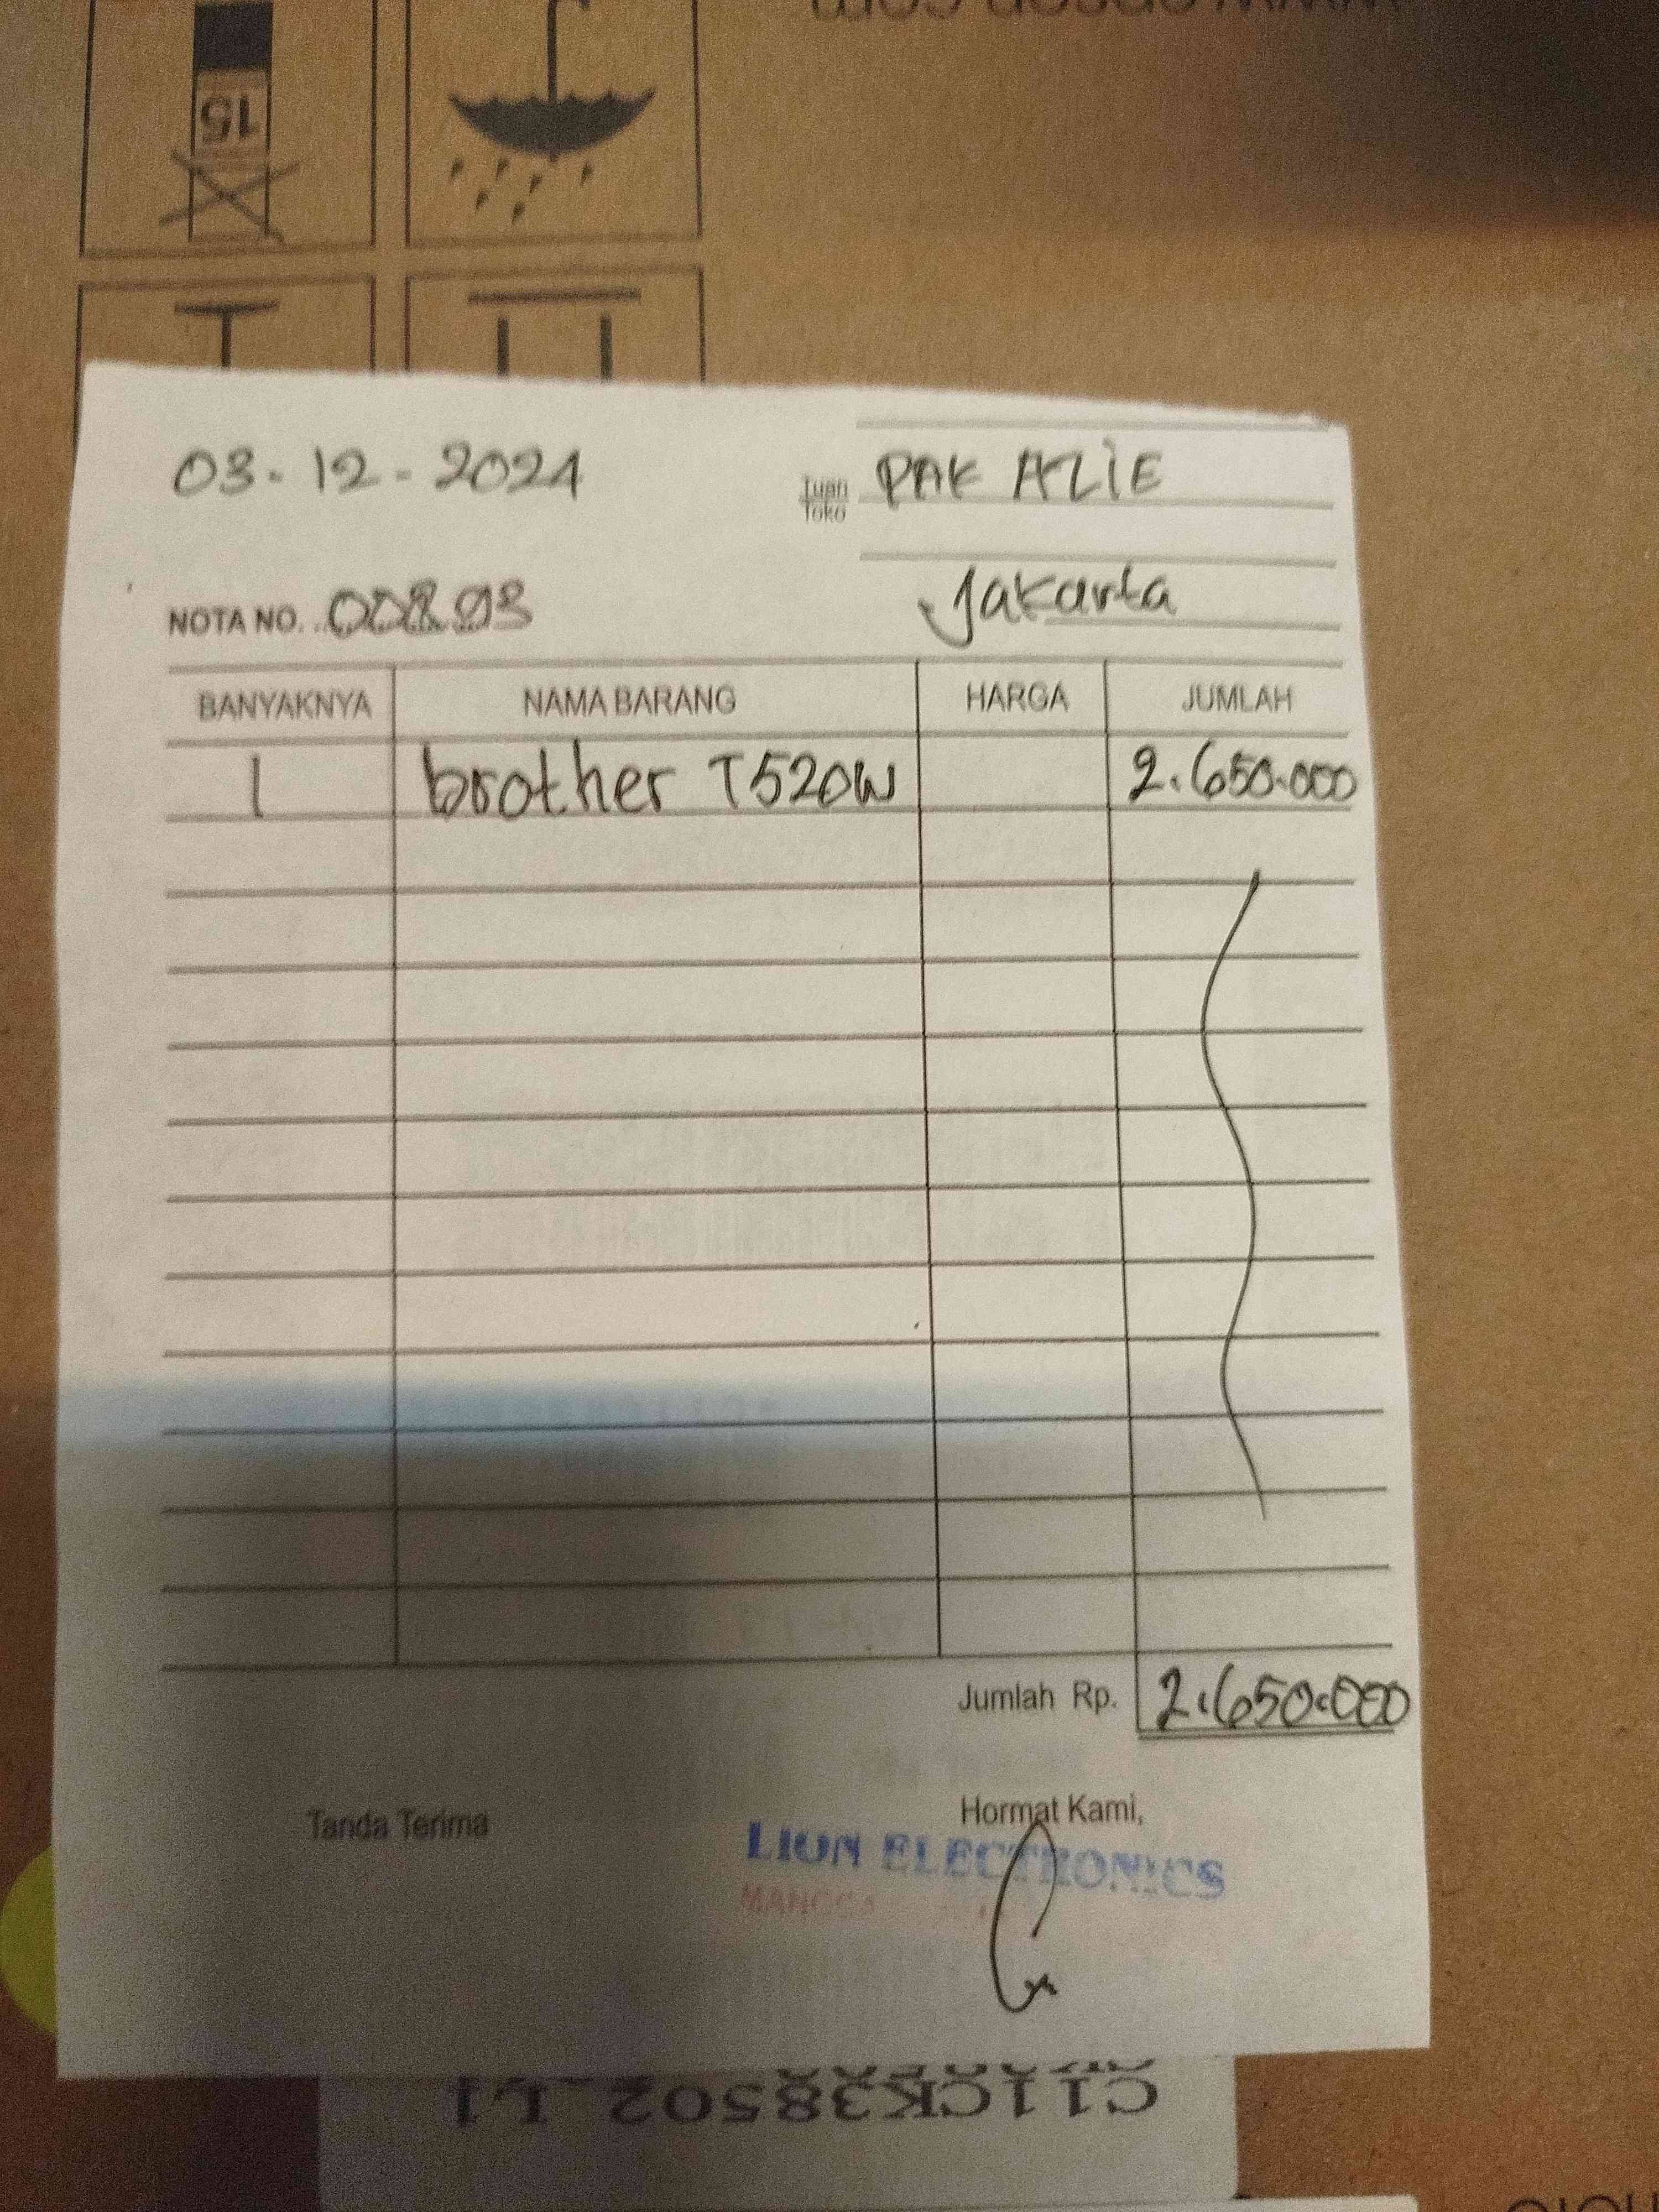 www.epson.com
15
03-12-2024
Tuan
Toko
PAK AZIE
Jakarta
NOTA NO. 00893
BANYAKNYA NAMA BARANG HARGA JUMLAH
1 brother T520W 2.650.000
Jumlah Rp. 2.650.000
Tanda Terima
Hormat Kami,
LION ELECTRONICS
MANGGA
C11CK38502 L1